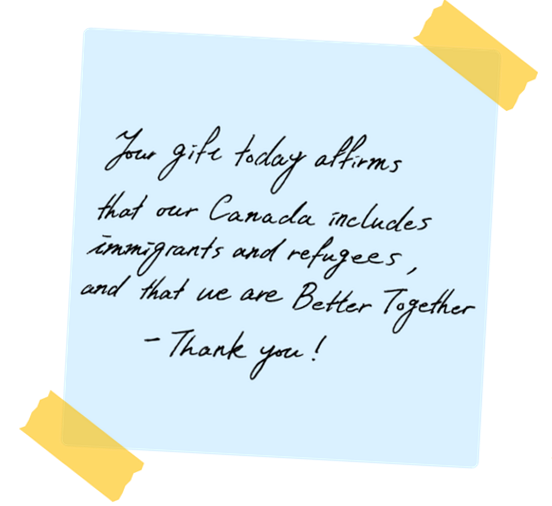 Your gift today affirms
that our Canada includes
immigrants and refugees,
and that we are Better Together
- Thank you!